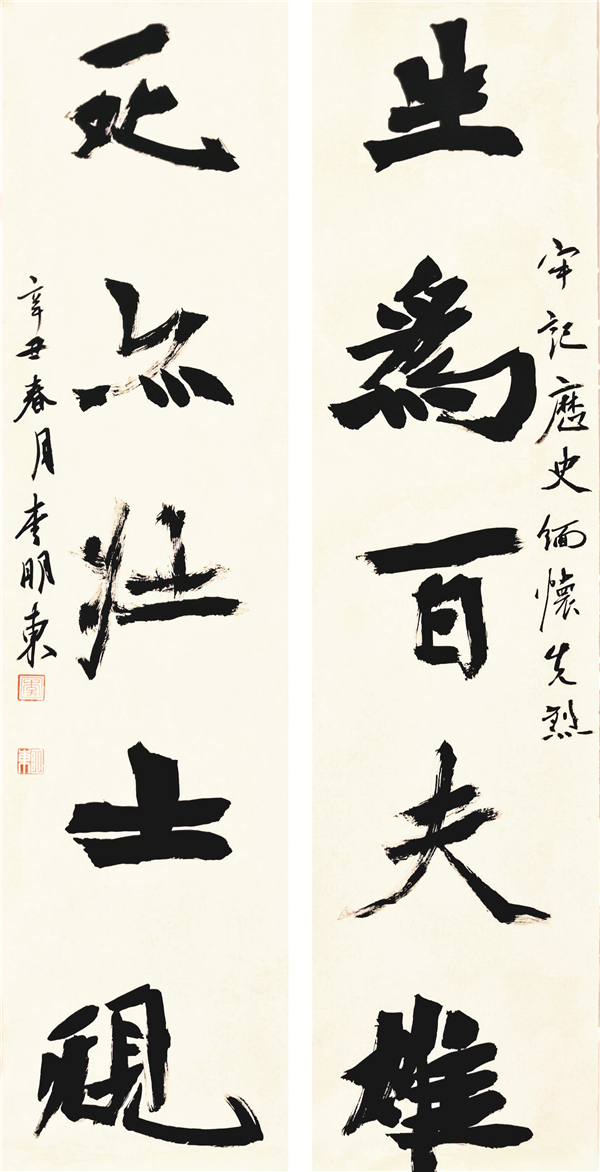 牢記歷史緬懷先烈
生為百夫雄
死為壯士規
辛丑春月李明東
李
明東